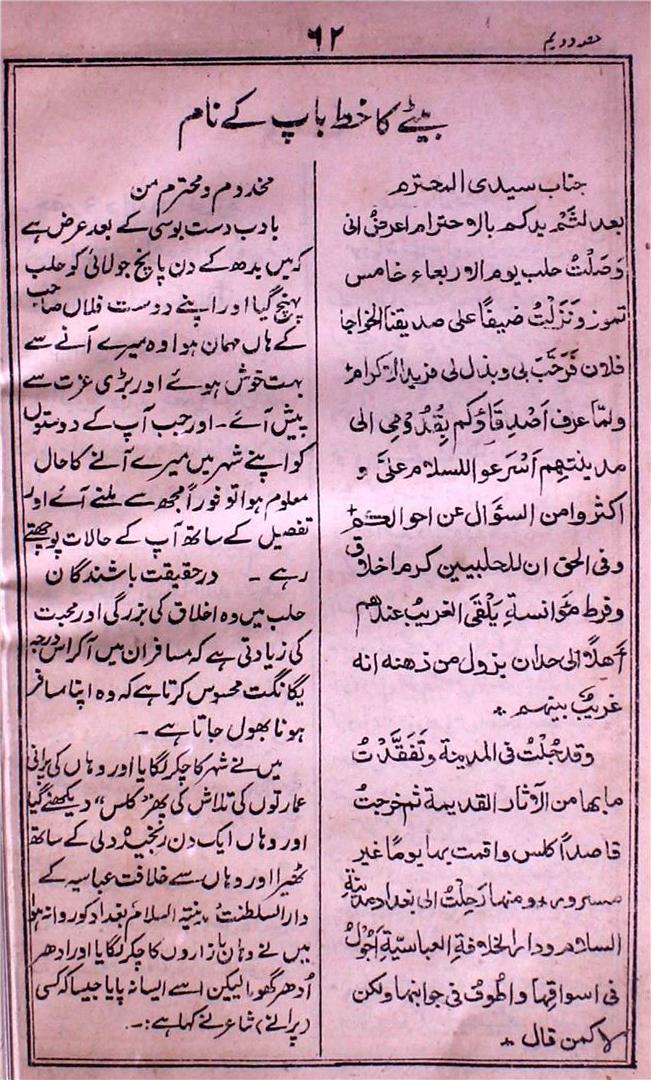 ۶۲
بیٹے کا خط باپ کے نام
جناب سیدی المحترم
بعد لثم یدکم بالاحترام اعرض انی
وَصَلْتُ حلب یوم الاربعاء خامس
تموز وَنَزَلْتُ ضیفًا علی صدیقنا الخواجا
فلان فَرَحَّبَ بی وبذل لی مزید الاکرام
ولمّا عرف اَصْدِقَاؤُکم بِقُدُوْمِی الی
مدینتهم اَسْرَعوا للسلام علیَّ و
اکثروا من السؤال عن احوالکم
وفی الحق ان للحلبیین کرم اخلاق
وفرط مؤانسةٍ یَلْقَی الغریبُ عندهم
أهلاً الی حد ان یزول من ذهنه انه
غریبٌ بینهم
وقد جُلْتُ فی المدینة وتَفَقَّدْتُ
ما بها من الآثار القدیمة ثم خرجتُ
قاصداً کلس واقمت بها یومًا غیر
مسرور ومنها رَحِلْتُ الی بغداد مدینة
السلام ودار الخلافة العباسیّة اَجُوْلُ
فی اسواقها واطُوفُ فی جوانبها ولکن
لا کمن قال
مخدوم و محترم من
بادب دست بوسی کے بعد عرض ہے
کہ میں بدھ کے دن پانچ جولائی کو حلب
پہنچ گیا اور اپنے دوست فلاں صاحب
کے ہاں مہمان ہوا وہ میرے آنے سے
بہت خوش ہوئے اور بڑی عزت سے
پیش آئے۔ اور جب آپ کے دوستوں
کو اپنے شہر میں میرے آنے کا حال
معلوم ہوا تو فوراً مجھ سے ملنے آئے اور
تفصیل کے ساتھ آپ کے حالات پوچھتے
رہے ۔ درحقیقت باشندگان
حلب میں وہ اخلاق کی بزرگی اور محبت
کی زیادتی ہے کہ مسافر ان میں آکر اس درجہ
یگانگت محسوس کرتا ہے کہ وہ اپنا مسافر
ہونا بھول جاتا ہے ۔
میں نے شہر کا چکر لگایا اور وہاں کی پرانی
عمارتوں کی تلاش کی پھر کلس دیکھنے گیا
اور وہاں ایک دن رنجیدہ دلی کے ساتھ
ٹھیرا اور وہاں سے خلافت عباسیہ کے
دارالسلطنت مدینۃ السلام بغداد کو روانہ ہوا
میں نے وہاں بازاروں کا چکر لگایا اور ادھر
اُدھر گھوما لیکن اسے ایسا نہ پایا جیسا کہ کسی
(پرانے) شاعر نے کہا ہے :۔